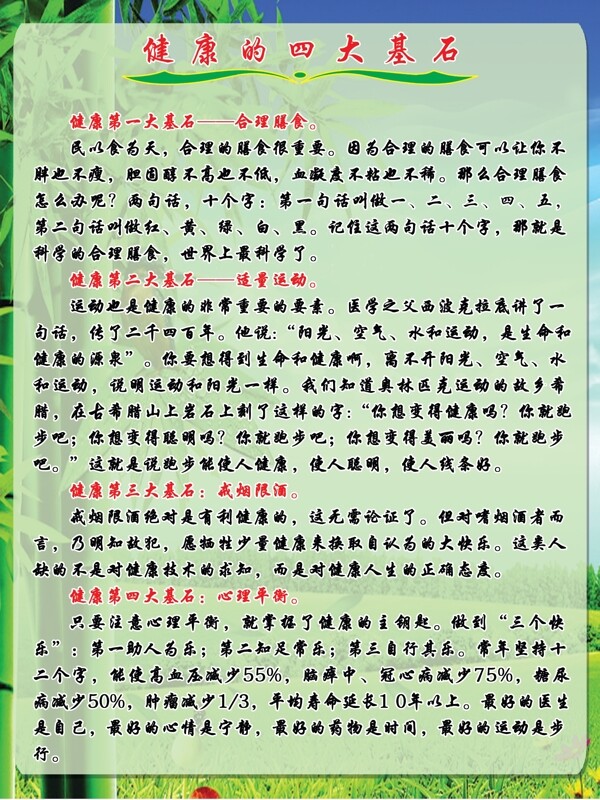 健康的四大基石
健康第一大基石——合理膳食。
民以食为天，合理的膳食很重要。因为合理的膳食可以让你不
胖也不瘦，胆固醇不高也不低，血凝度不粘也不稀。那么合理膳食
怎么办呢？两句话，十个字：第一句话叫做一、二、三、四、五，
第二句话叫做红、黄、绿、白、黑。记住这两句话十个字，那就是
科学的合理膳食，世界上最科学了。
健康第二大基石——适量运动。
运动也是健康的非常重要的要素。医学之父西波克拉底讲了一
句话，传了二千四百年。他说：“阳光、空气、水和运动，是生命和
健康的源泉”。你要想得到生命和健康啊，离不开阳光、空气、水
和运动，说明运动和阳光一样。我们知道奥林匹克运动的故乡希
腊，在古希腊山上岩石上刻了这样的字：“你想变得健康吗？你就跑
步吧；你想变得聪明吗？你就跑步吧；你想变得美丽吗？你就跑步
吧。”这就是说跑步能使人健康，使人聪明，使人线条好。
健康第三大基石：戒烟限酒。
戒烟限酒绝对是有利健康的，这无需论证了。但对嗜烟酒者而
言，乃明知故犯，愿牺牲少量健康来换取自认为的大快乐。这类人
缺的不是对健康技术的求知，而是对健康人生的正确态度。
健康第四大基石：心理平衡。
只要注意心理平衡，就掌握了健康的主钥匙。做到“三个快
乐”：第一助人为乐；第二知足常乐；第三自行其乐。常年坚持十
二个字，能使高血压减少55%，脑瘁中、冠心病减少75%，糖尿
病减少50%，肿瘤减少1/3，平均寿命延长10年以上。最好的医生
是自己，最好的心情是宁静，最好的药物是时间，最好的运动是步
行。